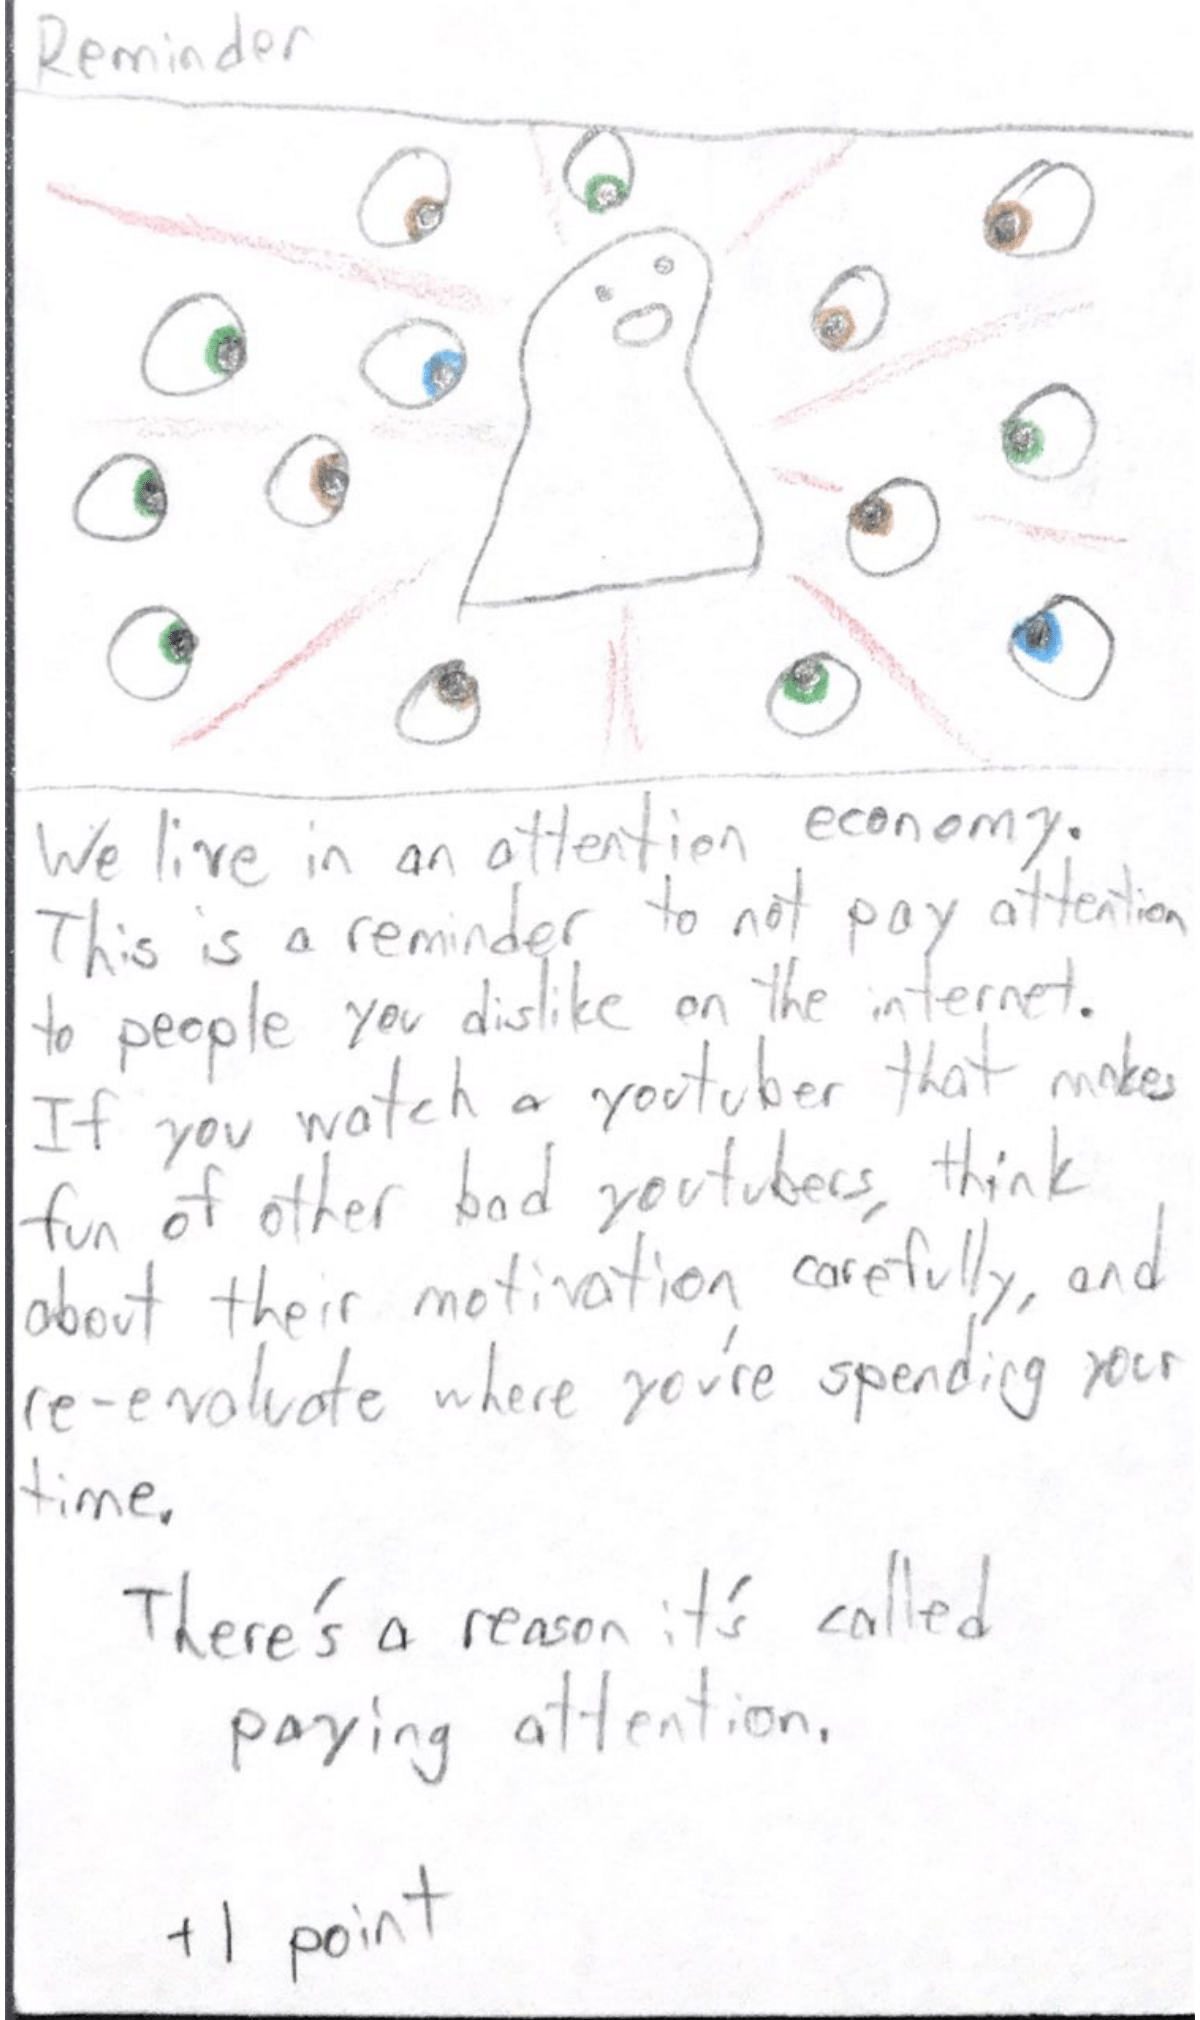 Reminder
We live in an attention economy.
This is a reminder to not pay attention
to people you dislike on the internet.
If you watch a youtuber that makes
fun of other bad youtubers, think
about their motivation carefully, and
re-evaluate where you're spending your
time.
There's a reason it's called
paying attention.
+1 point